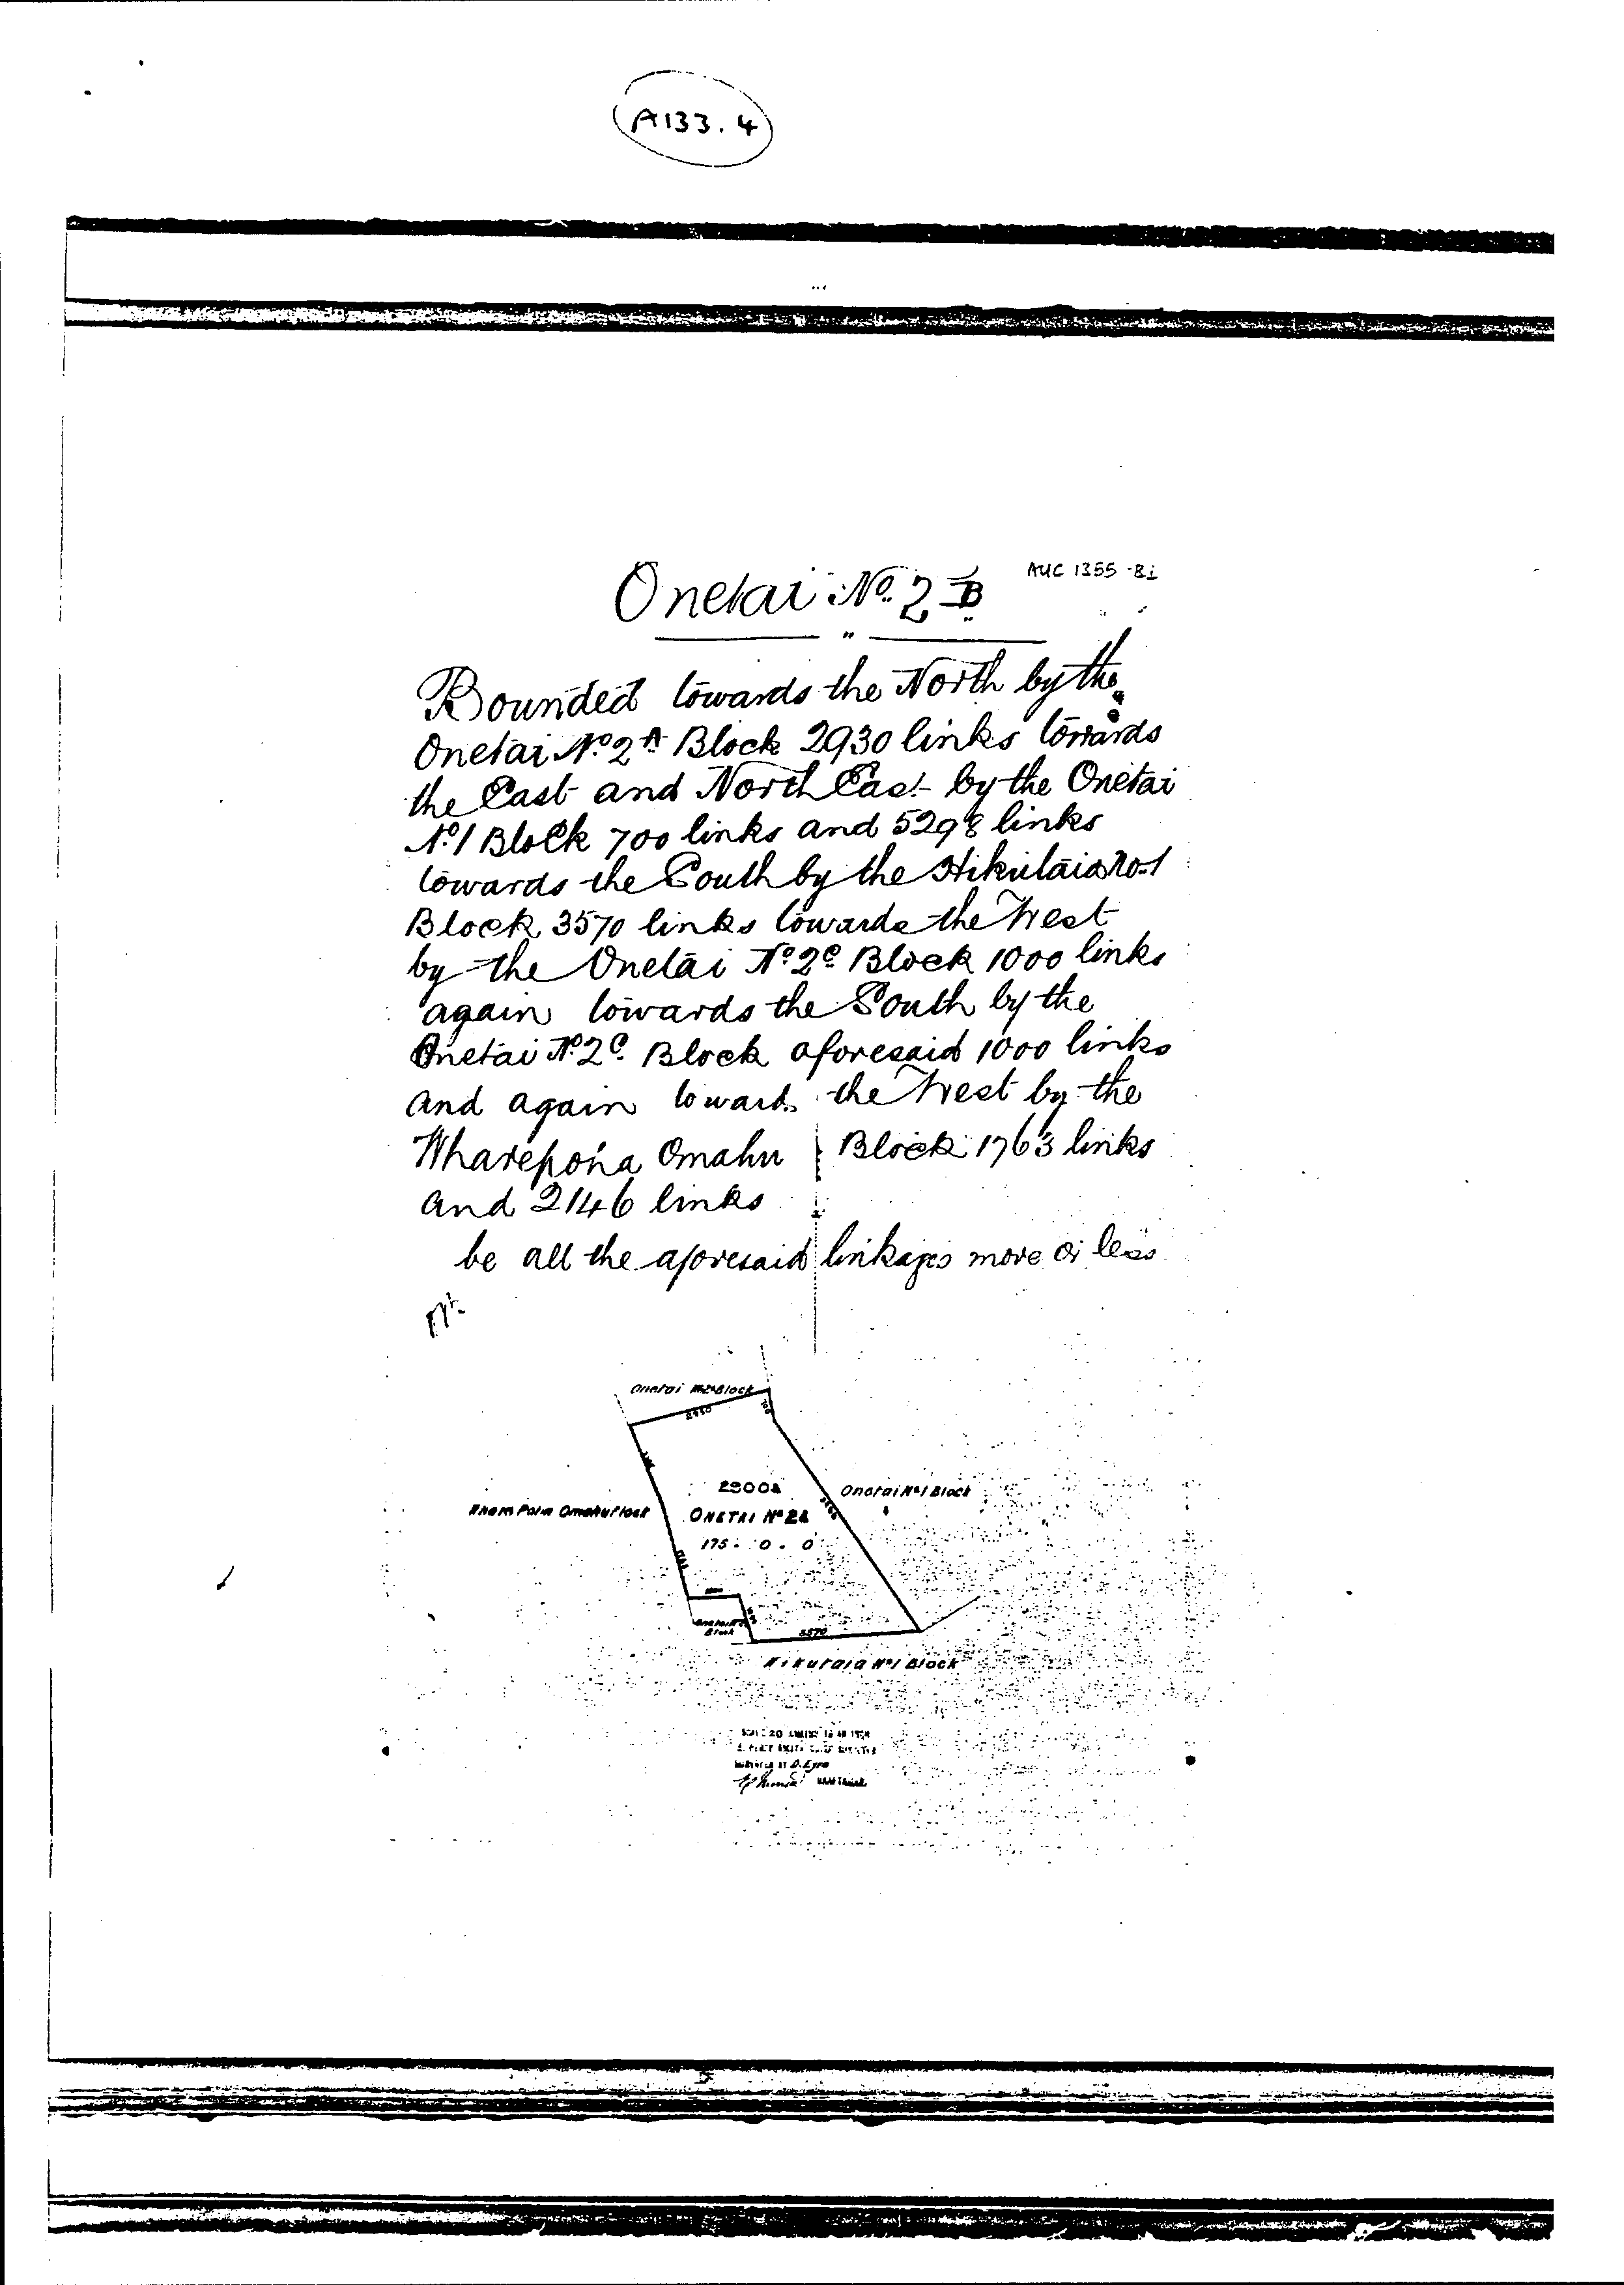 A133.4
Onetai No. 2 B
AUC 1355 -Bi
Bounded towards the North by the
Onetai No. 2A Block 2930 links towards
the East and North East by the Onetai
No. 1 Block 700 links and 5298 links
towards the South by the Hikutaia No 1
Block 3570 links towards the West
by the Onetai No. 2C Block 1000 links
again towards the South by the
Onetai No. 2C. Block aforesaid 1000 links
and again towards the West by the
Wharepoha Omahu Block 1763 links
and 2146 links
be all the aforesaid linkages more or less
Onetai Block
2930
Onetai No 1 Block
Omahu Block
ONETAI No
175 . 0 . 0
Block
3570
Hikutaia No 1 Block